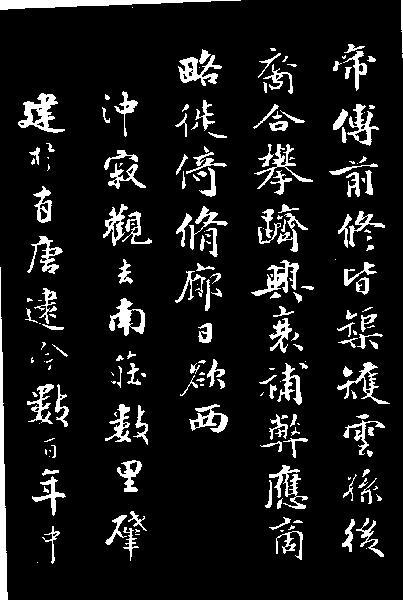 帝傅前修皆榘矱雲孫後
裔合攀躋興衰補弊應商
略徙倚脩廊日欲西
沖寂觀去南莊數里肇
建於有唐逮今數百年中